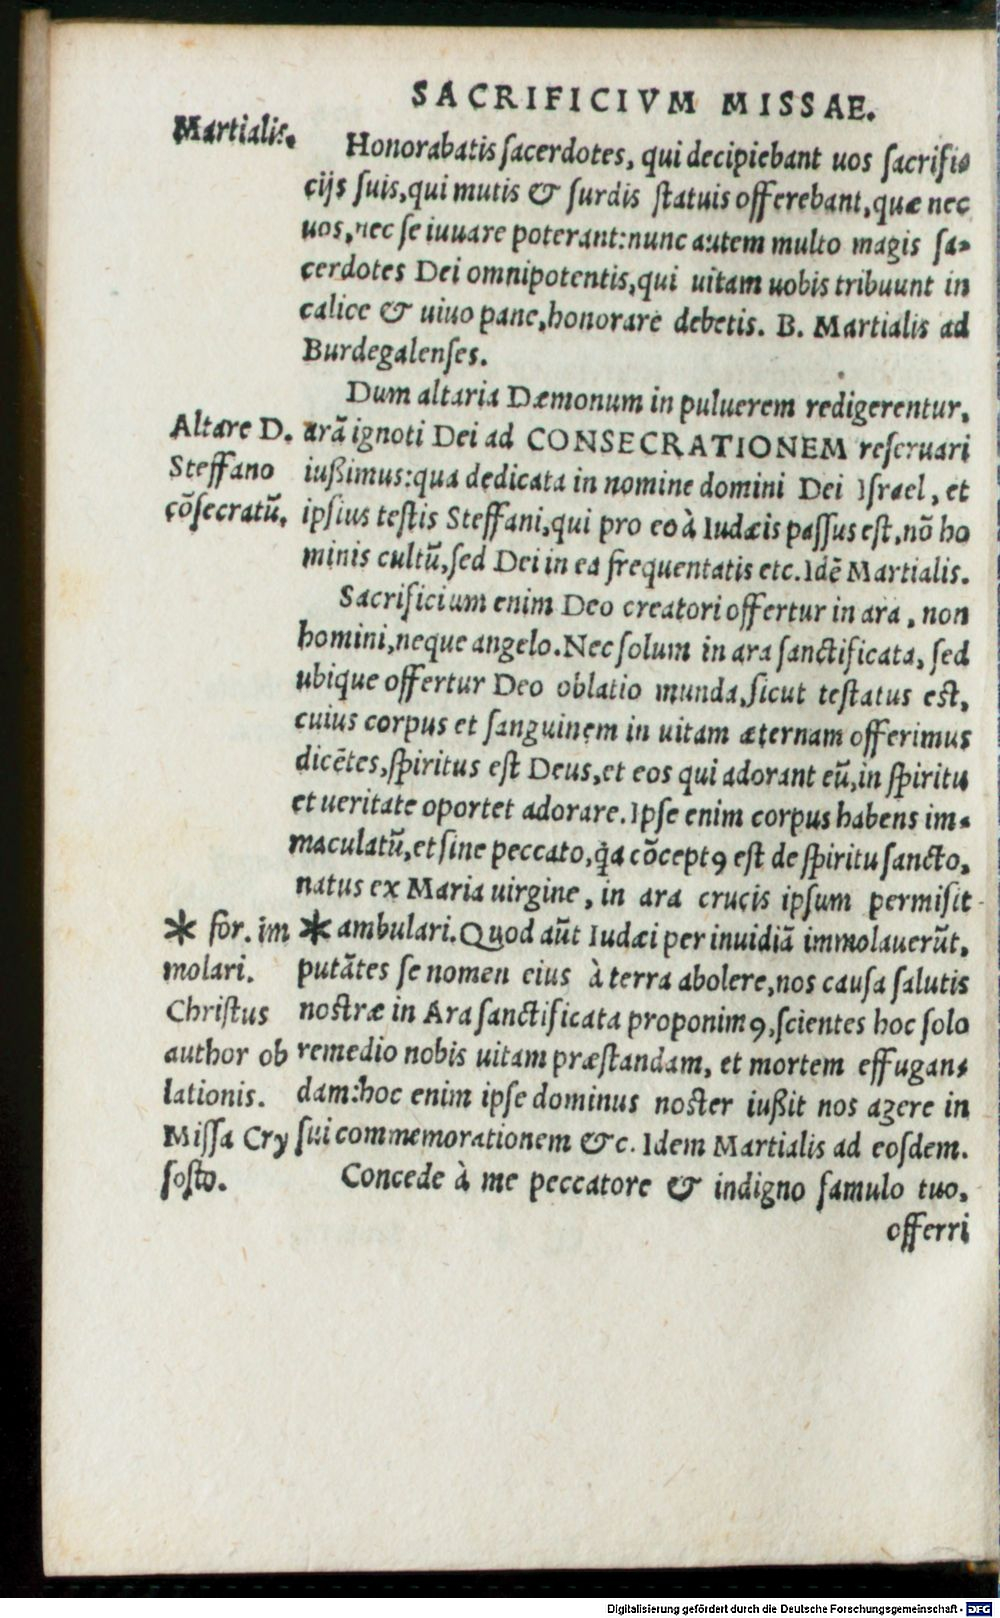 SACRIFICIVM MISSAE.
Martialis.
Honorabatis sacerdotes, qui decipiebant uos sacrifi-
cijs suis, qui mutis & surdis statuis offerebant, quæ nec
uos, nec se iuuare poterant: nunc autem multo magis sa-
cerdotes Dei omnipotentis, qui uitam uobis tribuunt in
calice & uiuo pane, honorare debetis. B. Martialis ad
Burdegalenses.
Dum altaria Dæmonum in puluerem redigerentur,
Altare D.
Steffano
cōsecratū.
arā ignoti Dei ad CONSECRATIONEM reseruari
iußimus: qua dedicata in nomine domini Dei Israel, et
ipsius testis Steffani, qui pro eo à Iudæis passus est, nō ho
minis cultū, sed Dei in ea frequentatis etc. Idē Martialis.
Sacrificium enim Deo creatori offertur in ara, non
homini, neque angelo. Nec solum in ara sanctificata, sed
ubique offertur Deo oblatio munda, sicut testatus est,
cuius corpus et sanguinem in uitam æternam offerimus
dicētes, spiritus est Deus, et eos qui adorant eū, in spiritu
et ueritate oportet adorare. Ipse enim corpus habens im-
maculatū, et sine peccato, q̃a cōceptꝰ est de spiritu sancto,
natus ex Maria uirgine, in ara crucis ipsum permisit
* for. im
molari.
Christus
author ob
lationis.
Missa Cry
sosto.
* ambulari. Quod aūt Iudæi per inuidiā immolauerūt,
putātes se nomen eius à terra abolere, nos causa salutis
nostræ in Ara sanctificata proponimꝰ, scientes hoc solo
remedio nobis uitam præstandam, et mortem effugan-
dam: hoc enim ipse dominus noster iußit nos agere in
sui commemorationem &c. Idem Martialis ad eosdem.
Concede à me peccatore & indigno famulo tuo,
offerri
Digitalisierung gefördert durch die Deutsche Forschungsgemeinschaft - DFG